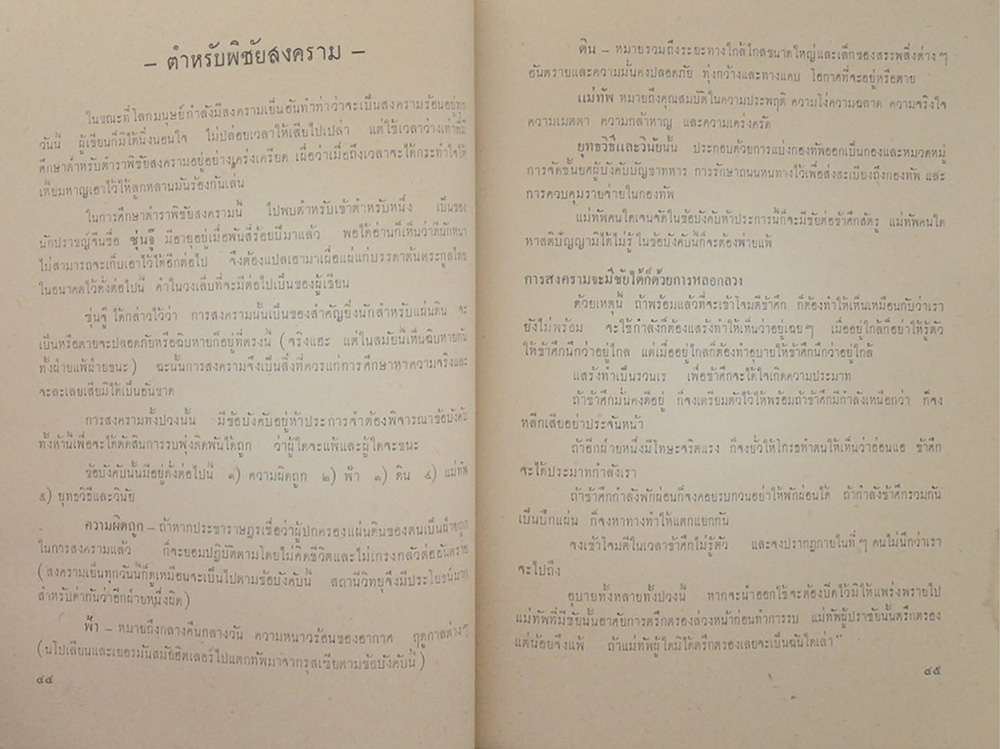 – ตำหรับพิชัยสงคราม –
ในขณะที่โลกมนุษย์กำลังมีสงครามเย็นอันทำท่าว่าจะเป็นสงครามร้อนอยู่ทุก
วันนี้ ผู้เขียนก็มิได้นิ่งนอนใจ ไม่ปล่อยเวลาให้เสียไปเปล่า แต่ใช้เวลาว่างเท่าที่มี
ศึกษาตำหรับตำราพิชัยสงครามอยู่อย่างเคร่งเครียด เผื่อว่าเมื่อถึงเวลาจะได้กระทำใจให้
เหี้ยมหาญเอาไว้ให้ลูกหลานมันร้องกันเล่น
ในการศึกษาตำราพิชัยสงครามนี้ ไปพบตำหรับเข้าตำหรับหนึ่ง เป็นของ
นักปราชญ์จีนชื่อ ซุ่นจู๊ มีอายุอยู่เมื่อพันสี่ร้อยปีมาแล้ว พอได้อ่านก็เห็นว่าดีนักหนา
ไม่สามารถจะเก็บเอาไว้ได้อีกต่อไป จึงต้องแปลเอามาเผื่อแผ่แก่บรรดาต้นตระกูลไทย
ในอนาคตไว้ดังต่อไปนี้ คำในวงเล็บที่จะมีต่อไปเป็นของผู้เขียน
ซุ่นจู๊ ได้กล่าวไว้ว่า การสงครามนั้นเป็นของสำคัญยิ่งนักสำหรับแผ่นดิน จะ
เป็นหรือตายจะปลอดภัยหรือฉิบหายก็อยู่ที่ตรงนี้ (จริงแฮะ แต่ในสมัยนี้เห็นฉิบหายกัน
ทั้งฝ่ายแพ้ฝ่ายชนะ) ฉะนั้นการสงครามจึงเป็นสิ่งที่ควรแก่การศึกษาหาความจริงและ
จะละเลยเสียมิได้เป็นอันขาด
การสงครามทั้งปวงนั้น มีข้อบังคับอยู่ห้าประการจำต้องพิจารณาข้อบังคับ
ทั้งห้านี้เพื่อจะได้ตัดสินการรบพุ่งติดพันได้ถูก ว่าผู้ใดจะแพ้และผู้ใดจะชนะ
ข้อบังคับนั้นมีอยู่ดั่งต่อไปนี้ ๑) ความผิดถูก ๒) ฟ้า ๓) ดิน ๔) แม่ทัพ
๕) ยุทธวิธีและวินัย
ความผิดถูก – ถ้าหากประชาราษฎรเชื่อว่าผู้ปกครองแผ่นดินของตนเป็นฝ่ายถูก
ในการสงครามแล้ว ก็จะยอมปฏิบัติตามโดยไม่คิดชีวิตและไม่เกรงกลัวต่ออันตราย
(สงครามเย็นทุกวันนี้ก็ดูเหมือนจะเป็นไปตามข้อบังคับนี้ สถานีวิทยุจึงมีประโยชน์มาก
สำหรับด่ากันว่าอีกฝ่ายหนึ่งผิด)
ฟ้า – หมายถึงกลางคืนกลางวัน ความหนาวร้อนของอากาศ ฤดูกาลต่างๆ
(นโปเลียนและเยอรมันสมัยฮิตเลอร์ไปแตกทัพมาจากรุสเซียตามข้อบังคับนี้)
๔๔
ดิน – หมายรวมถึงระยะทางใกล้ไกลขนาดใหญ่และเล็กของสรรพสิ่งต่างๆ
อันตรายและความมั่นคงปลอดภัย ทุ่งกว้างและทางแคบ โอกาศที่จะอยู่หรือตาย
แม่ทัพ หมายถึงคุณสมบัติในความประพฤติ ความโง่ความฉลาด ความจริงใจ
ความเมตตา ความกล้าหาญ และความเคร่งครัด
ยุทธวิธีและวินัยนั้น ประกอบด้วยการแบ่งกองทัพออกเป็นกองและหมวดหมู่
การจัดชั้นยศผู้บังคับบัญชาทหาร การรักษาถนนหนทางไว้เพื่อส่งสะเบียงถึงกองทัพ และ
การควบคุมรายจ่ายในกองทัพ
แม่ทัพคนใดเจนจัดในข้อบังคับห้าประการนี้ก็จะมีชัยต่อข้าศึกสัตรู แม่ทัพคนใด
หาสติปัญญามิได้ไม่รู้ ในข้อบังคับนี้ก็จะต้องพ่ายแพ้
การสงครามจะมีชัยได้ก็ด้วยการหลอกลวง
ด้วยเหตุนี้ ถ้าพร้อมแล้วที่จะเข้าโจมตีข้าศึก ก็ต้องทำให้เห็นเหมือนกับว่าเรา
ยังไม่พร้อม จะใช้กำลังก็ต้องแสร้งทำให้เห็นว่าอยู่เฉยๆ เมื่ออยู่ใกล้ก็อย่าให้รู้ตัว
ให้ข้าศึกนึกว่าอยู่ไกล แต่เมื่ออยู่ไกลก็ต้องทำอุบายให้ข้าศึกนึกว่าอยู่ใกล้
แสร้งทำเป็นรวนเร เพื่อข้าศึกจะได้ใจเกิดความประมาท
ถ้าข้าศึกมั่นคงดีอยู่ ก็จงเตรียมตัวไว้ให้พร้อมถ้าข้าศึกมีกำลังเหนือกว่า ก็จง
หลีกเสียอย่าประจันหน้า
ถ้าอีกฝ่ายหนึ่งมีโทษะจริตแรง ก็จงยั่วให้โกรธทำตนให้เห็นว่าอ่อนแอ ข้าศึก
จะได้ประมาทกำลังเรา
ถ้าข้าศึกกำลังพักผ่อนก็จงคอยรบกวนอย่าให้พักผ่อนได้ ถ้ากำลังข้าศึกรวมกัน
เป็นปึกแผ่น ก็จงหาทางทำให้แตกแยกกัน
จงเข้าโจมตีในเวลาข้าศึกไม่รู้ตัว และจงปรากฏกายในที่ๆ คนไม่นึกว่าเรา
จะไปถึง
อุบายทั้งหลายทั้งปวงนี้ หากจะนำออกใช้จะต้องปิดไว้มิให้แพร่งพรายไป
แม่ทัพที่มีชัยนั้นอาศัยการตรึกตรองล่วงหน้าก่อนทำการรบ แม่ทัพผู้ปราชัยนั้นตรึกตรอง
แต่น้อยจึงแพ้ ถ้าแม่ทัพผู้ใดมิได้ตรึกตรองเลยจะเป็นฉันใดเล่า"
๔๕